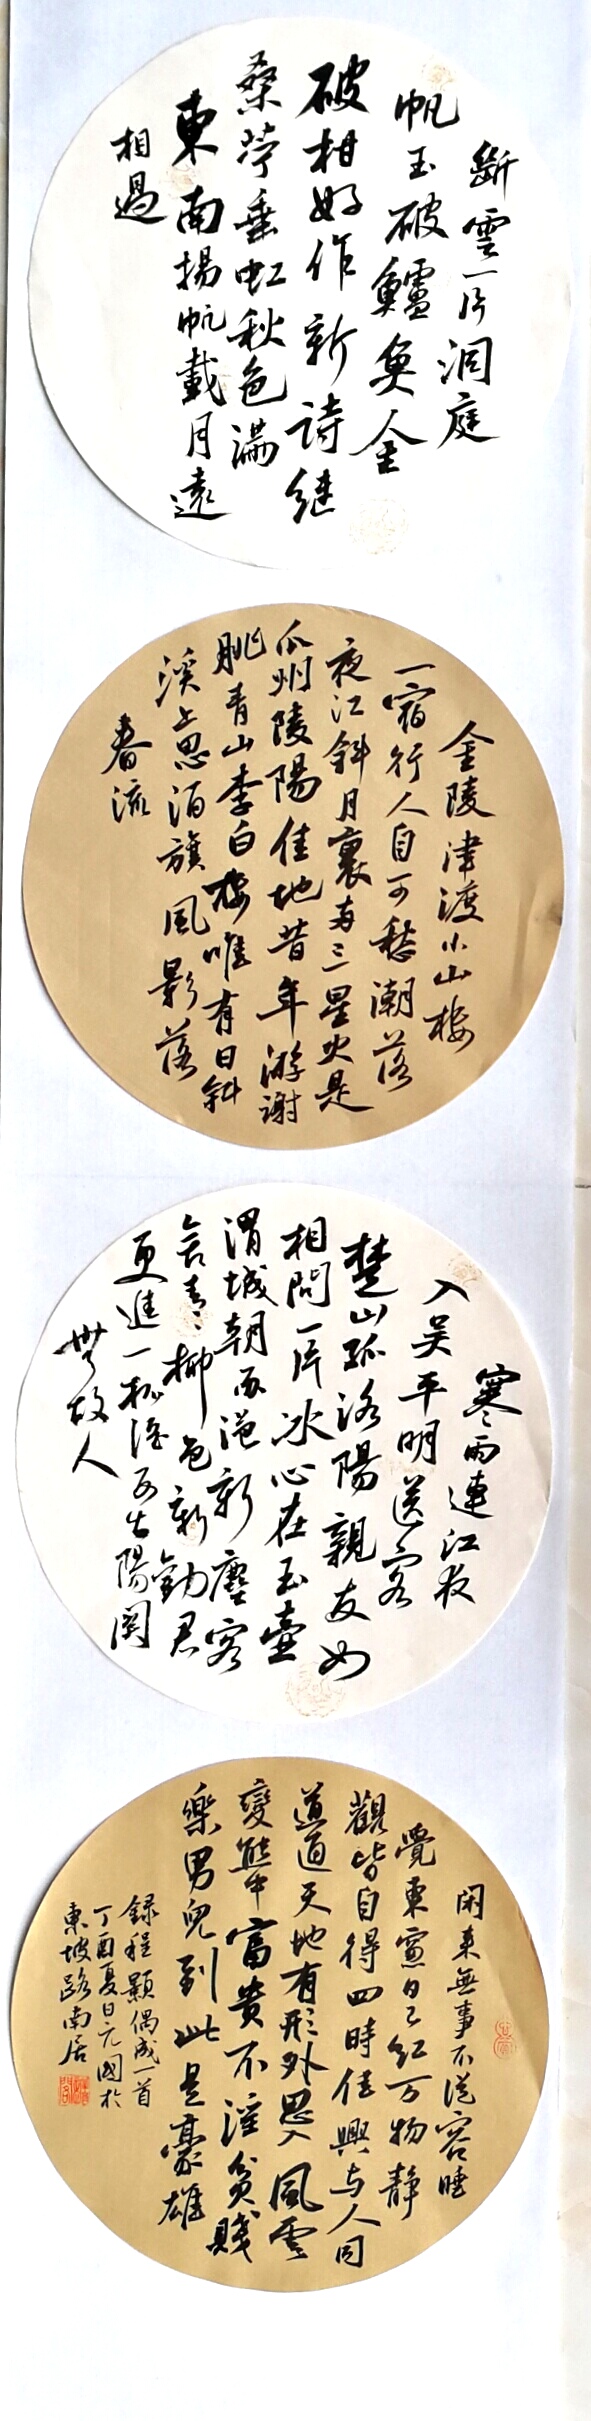 斷雲一片洞庭
帆玉破鱸魚金
破柑好作新詩繼
桑苧垂虹秋色滿
東南揚帆載月遠
相過
金陵津渡小山樓
一宿行人自可愁潮落
夜江斜月裏兩三星火是
瓜州陵陽佳地昔年游謝
朓青山李白樓唯有日斜
溪上思酒旗風影落
春流
寒雨連江夜
入吳平明送客
楚山孤洛陽親友如
相問一片冰心在玉壺
渭城朝雨浥新塵客
舍青〻柳色新勸君
更進一杯酒西出陽關
無故人
閑來無事不從容睡
覺東窻日已紅万物靜
觀皆自得四時佳興与人同
道通天地有形外思入風雲
變態中富貴不淫貧賤
樂男兒到此是豪雄
錄程顥偶成一首
丁酉夏日元國於
東坡路南居